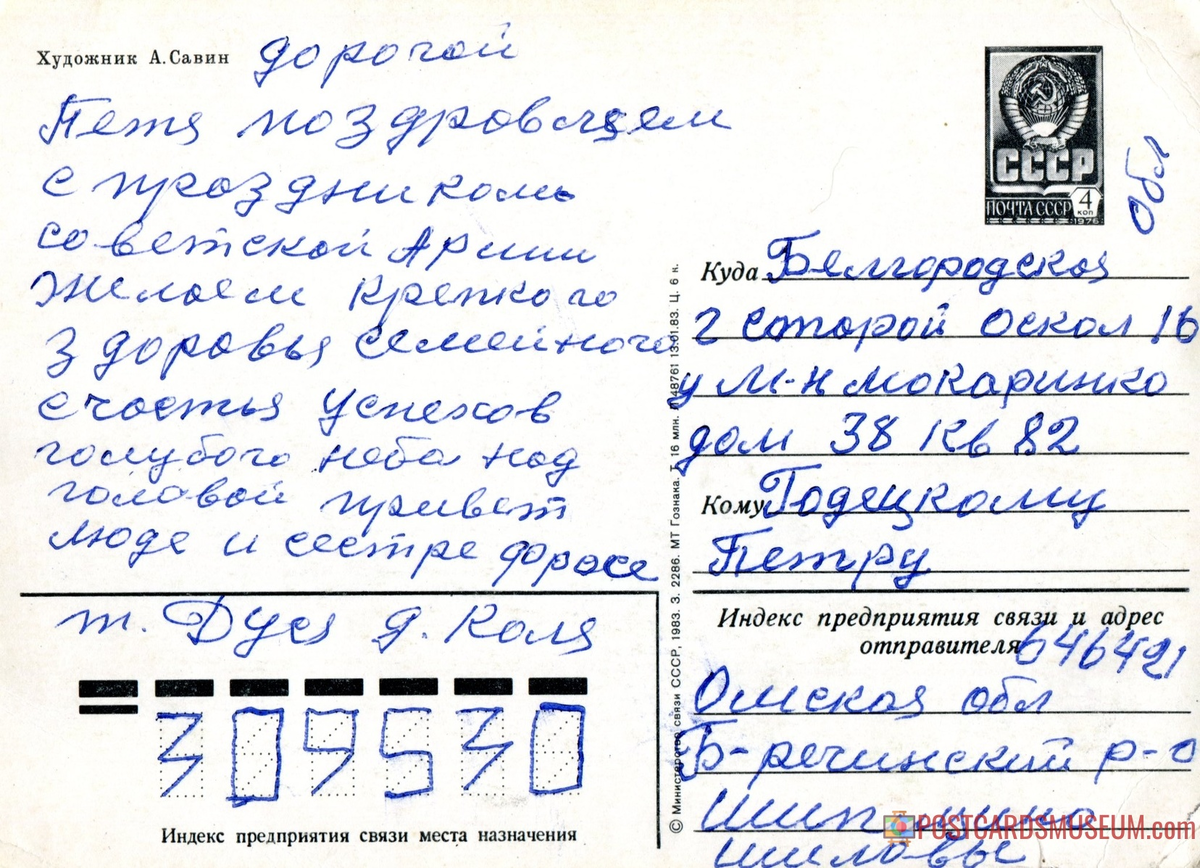 Художник А.Савин
дорогой
Петя поздровляем
с проздником
советской Армии
Желоем крепкого
здоровья семейного
счостья успехов
голубого неба над
головой привет
люде и сестре
т. Дуся д. Коля
309530
Индекс предприятия связи места назначения
СССР
ПОЧТА СССР 4 коп
1976
обл
Куда Белгородская
г старой Оскол 16
у М-н мокаринко
дом 38 кв 82
Кому Годецкому
Петру
Индекс предприятия связи и адрес
отправителя 646421
Омская обл
Б-речинский р-о
шиловы
© Министерство связи СССР, 1983. З. 2286. МТ Гознака. Т. 16 млн. 13.01.83. Ц. 6 к.
POSTCARDSMUSEUM.com